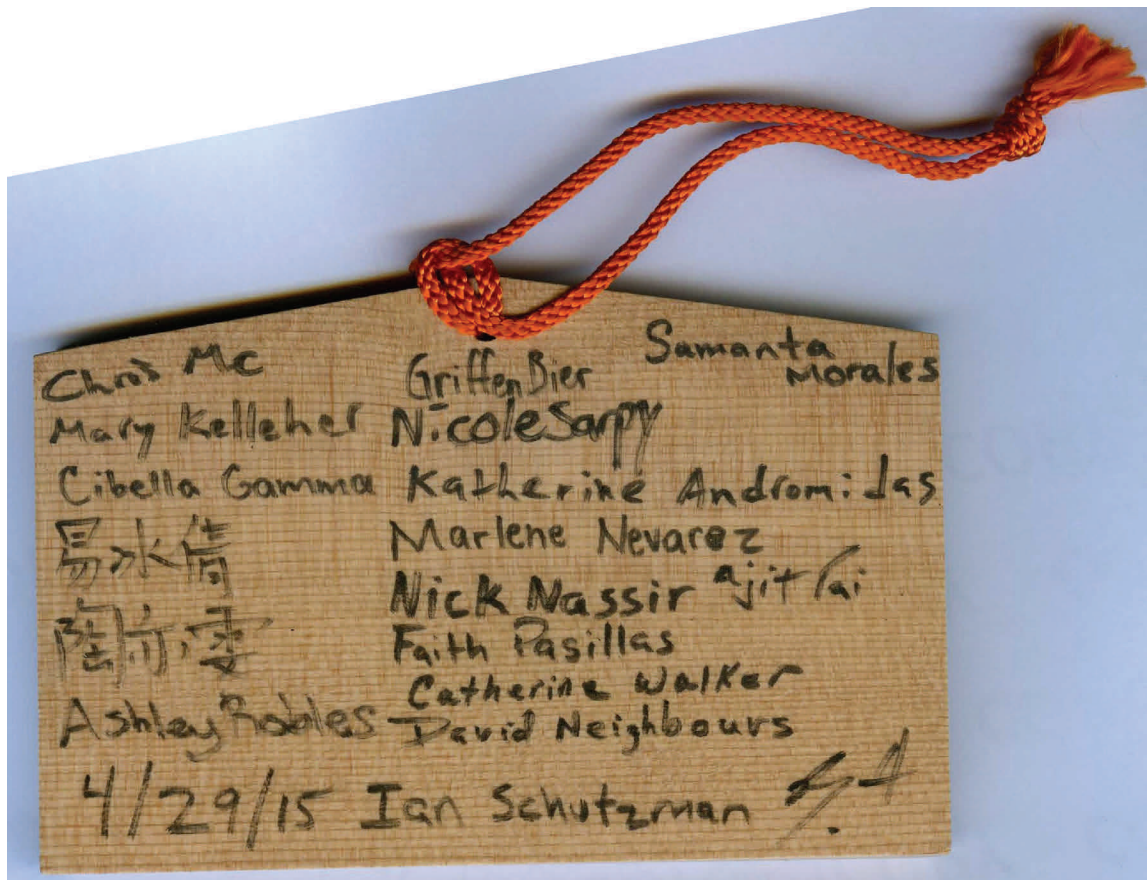 Chris Mc
Mary Kelleher
Cibella Gamma
易水倩
Ashley Robles
Griffen Bier
Nicole Sarpy
Katherine Andromidas
Marlene Nevarez
Nick Nassir ajit rai
Faith Pasillas
Catherine Walker
David Neighbours
Samanta
Morales
4/29/15 Ian Schutzman